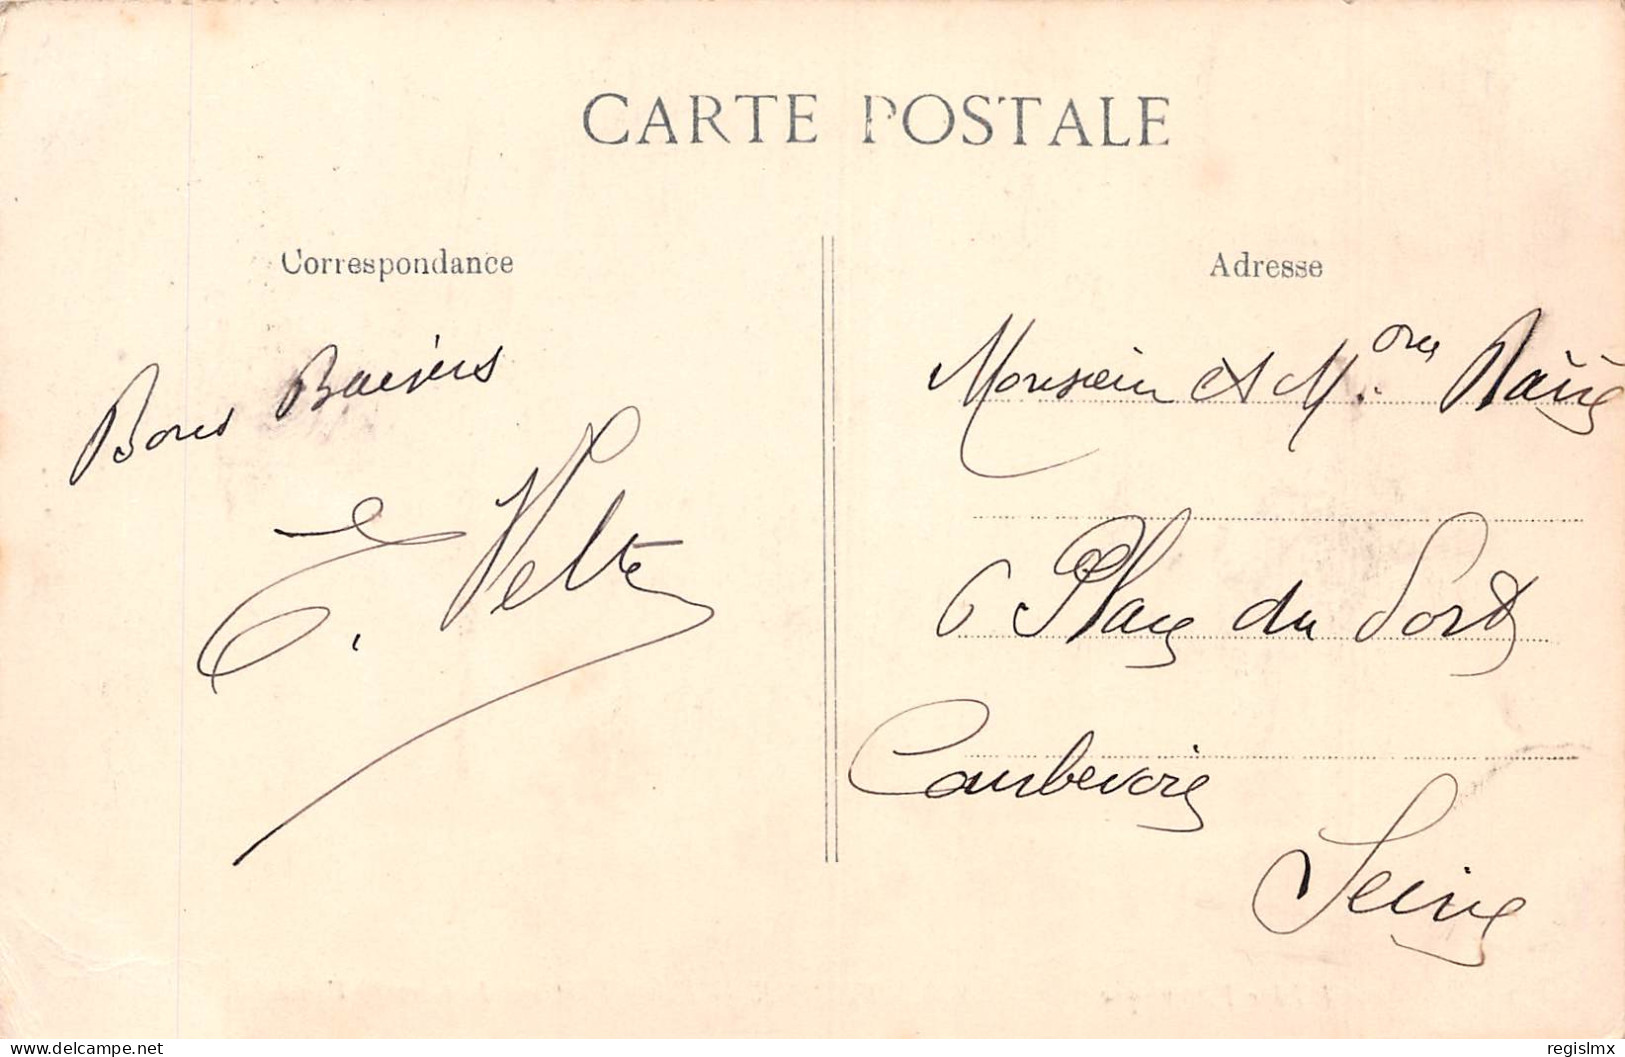 CARTE POSTALE
Correspondance
Bons Baisers
E. Velt
Adresse
Monsieur et M.
6 Place du Port
Courbevoie
Seine
delcampe.net
regislmx